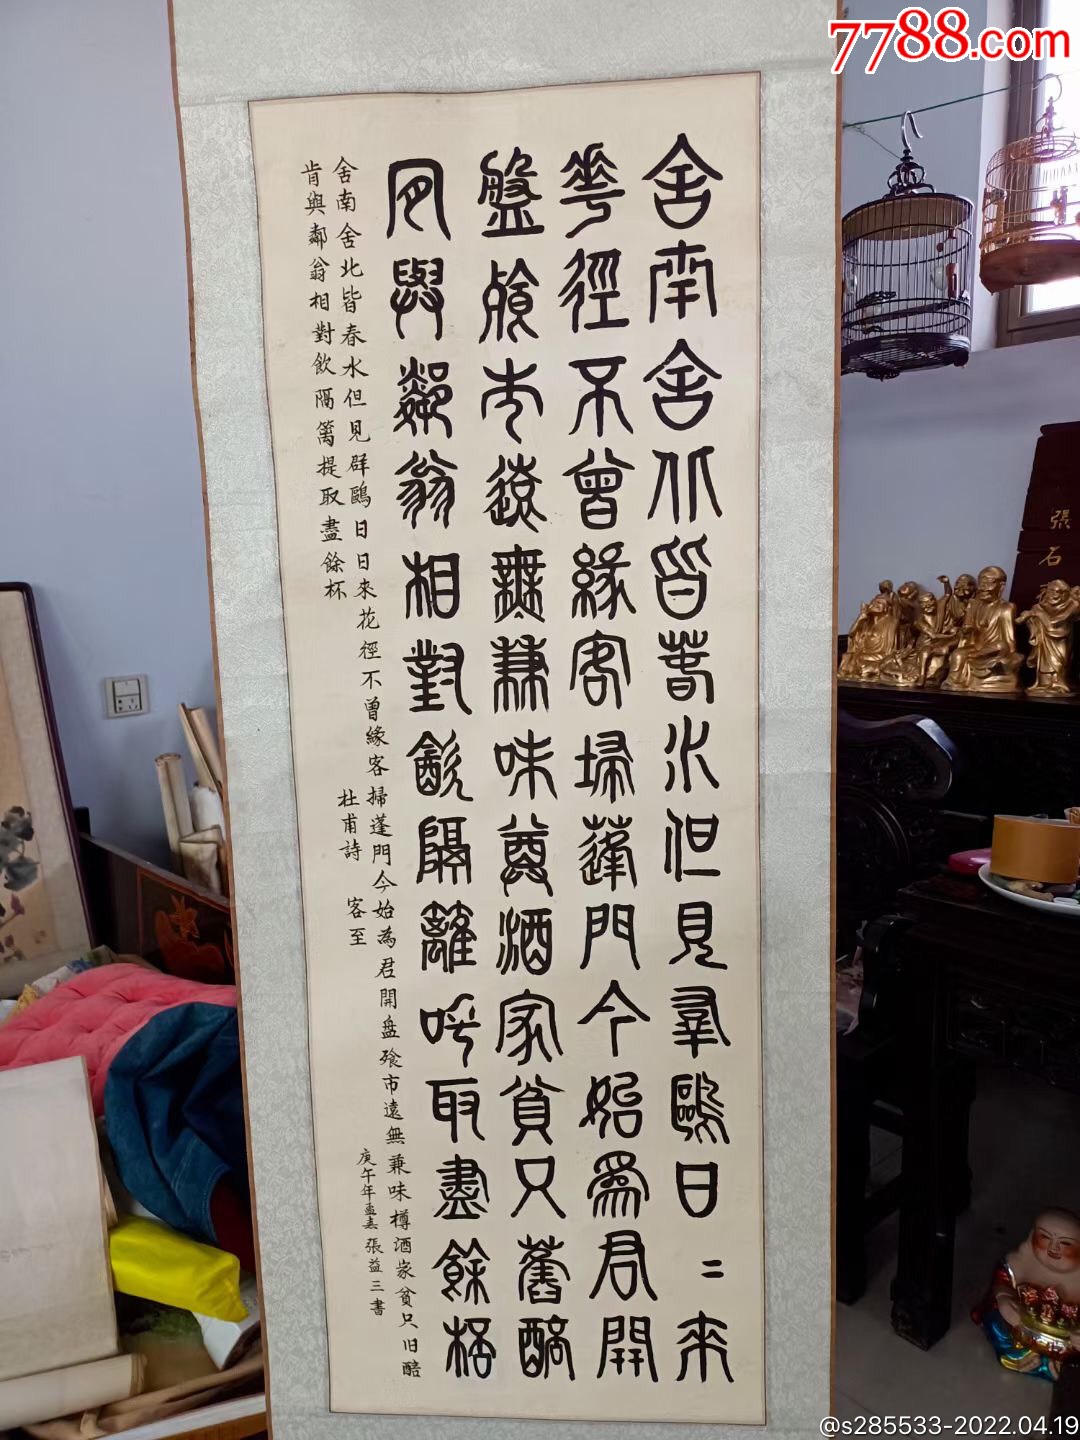 7788.com
舍南舍北皆春水但見羣鷗日二來
華徑不曾緣客埽蓬門今始為君開
盤飧市遠無兼味尊酒家貧只舊醅
肎與鄰翁相對飲隔籬呼取盡餘桮
舍南舍北皆春水但見群鷗日日來花徑不曾緣客掃蓬門今始為君開盘飱市遠無兼味樽酒家貧只旧醅
肯與鄰翁相對飲隔篱提取盡餘杯
杜甫詩 客至
庚午年孟 張益三書
張石
@s285533-2022.04.19